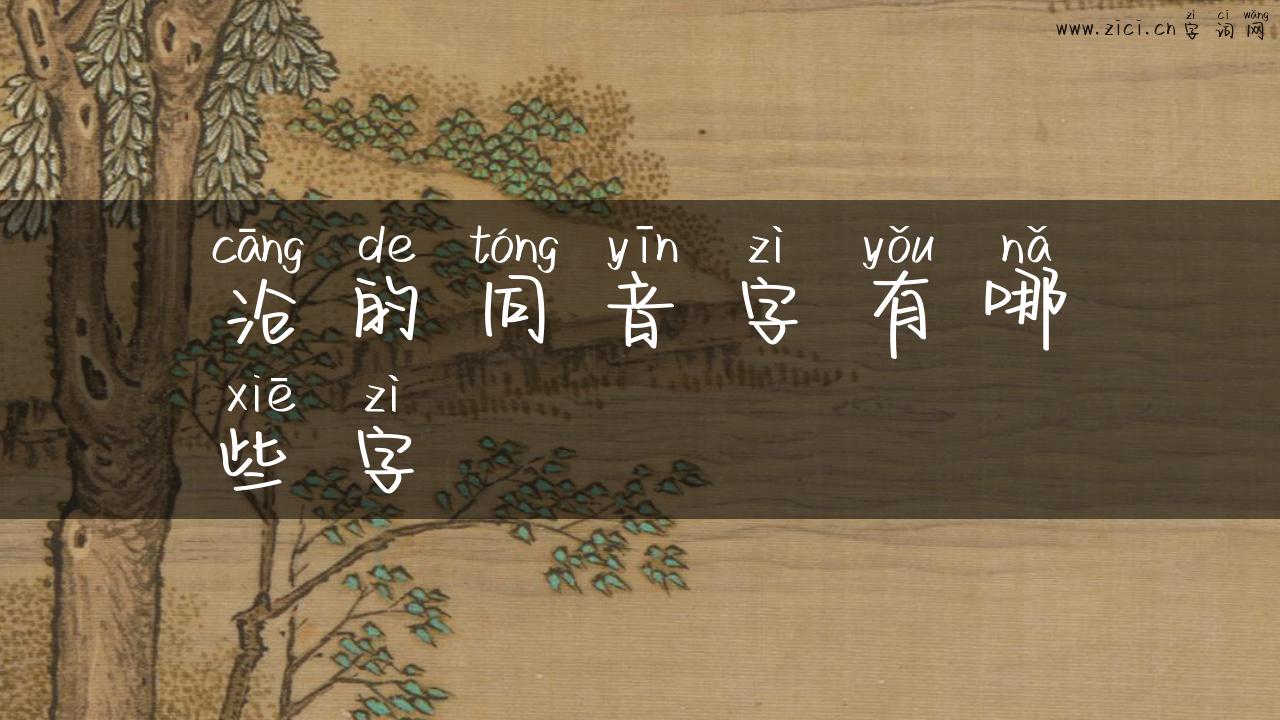 zì cí wǎng
www.zici.cn 字词网
cāng de tóng yīn zì yǒu nǎ
沧的同音字有哪
xiē zì
些字